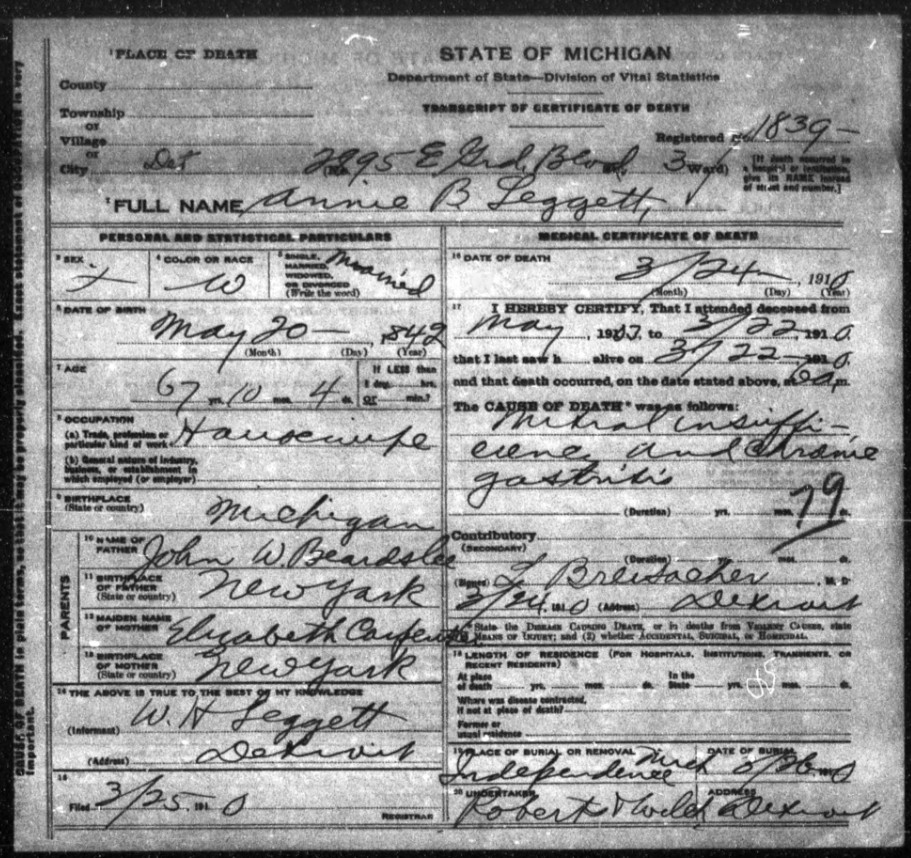 ¹PLACE OF DEATH
STATE OF MICHIGAN
Department of State—Division of Vital Statistics
TRANSCRIPT OF CERTIFICATE OF DEATH
County
Township
or
Village
or
City Det
Registered No. 1839-
(No. 2895 E Grd. Blvd, St., 3 Ward)
[If death occurred in a hospital or institution give its NAME instead of street and number.]
² FULL NAME Annie B Leggett,
PERSONAL AND STATISTICAL PARTICULARS
³ SEX F
⁴ COLOR OR RACE W
⁵ SINGLE, MARRIED, WIDOWED, OR DIVORCED (Write the word) Married
⁶ DATE OF BIRTH
May 20 - , 1842
(Month) (Day) (Year)
⁷ AGE
67 yrs. 10 mos. 4 ds.
If LESS than 1 day, hrs. or min.?
⁸ OCCUPATION
(a) Trade, profession or particular kind of work Housewife
(b) General nature of industry, business, or establishment in which employed (or employer)
⁹ BIRTHPLACE
(State or country) Michigan
PARENTS
¹⁰ NAME OF FATHER John W. Beardslee
¹¹ BIRTHPLACE OF FATHER (State or country) New York
¹² MAIDEN NAME OF MOTHER Elizabeth
¹³ BIRTHPLACE OF MOTHER (State or country) New York
¹⁴ THE ABOVE IS TRUE TO THE BEST OF MY KNOWLEDGE
(Informant) W. H Leggett
(Address) Detroit
¹⁵
Filed 3/25. 191 0
REGISTRAR
MEDICAL CERTIFICATE OF DEATH
¹⁶ DATE OF DEATH
3/24 , 1910
(Month) (Day) (Year)
¹⁷ I HEREBY CERTIFY, That I attended deceased from
May , 1907, to 3/22 1910.
that I last saw h alive on 3/22 1910.
and that death occurred, on the date stated above, at 6 a m.
The CAUSE OF DEATH* was as follows:
Mitral insuffi-
ciency and Chronic
gastritis
79
(Duration) yrs. mos. ds.
Contributory
(SECONDARY)
(Duration) yrs. mos. ds.
(Signed) L Breisacher, M. D.
3/24. 1910 (Address) Detroit
*State the DISEASE CAUSING DEATH, or in deaths from VIOLENT CAUSES, state MEANS OF INJURY; and (2) whether ACCIDENTAL, SUICIDAL, or HOMICIDAL.
¹⁸ LENGTH OF RESIDENCE (FOR HOSPITALS, INSTITUTIONS, TRANSIENTS, OR RECENT RESIDENTS)
At place of death yrs. mos. ds. In the State yrs. mos. ds.
Where was disease contracted, if not at place of death?
Former or usual residence
¹⁹ PLACE OF BURIAL OR REMOVAL Independence Mich
DATE OF BURIAL 3/26 1910
²⁰ UNDERTAKER Roberts &
ADDRESS Detroit